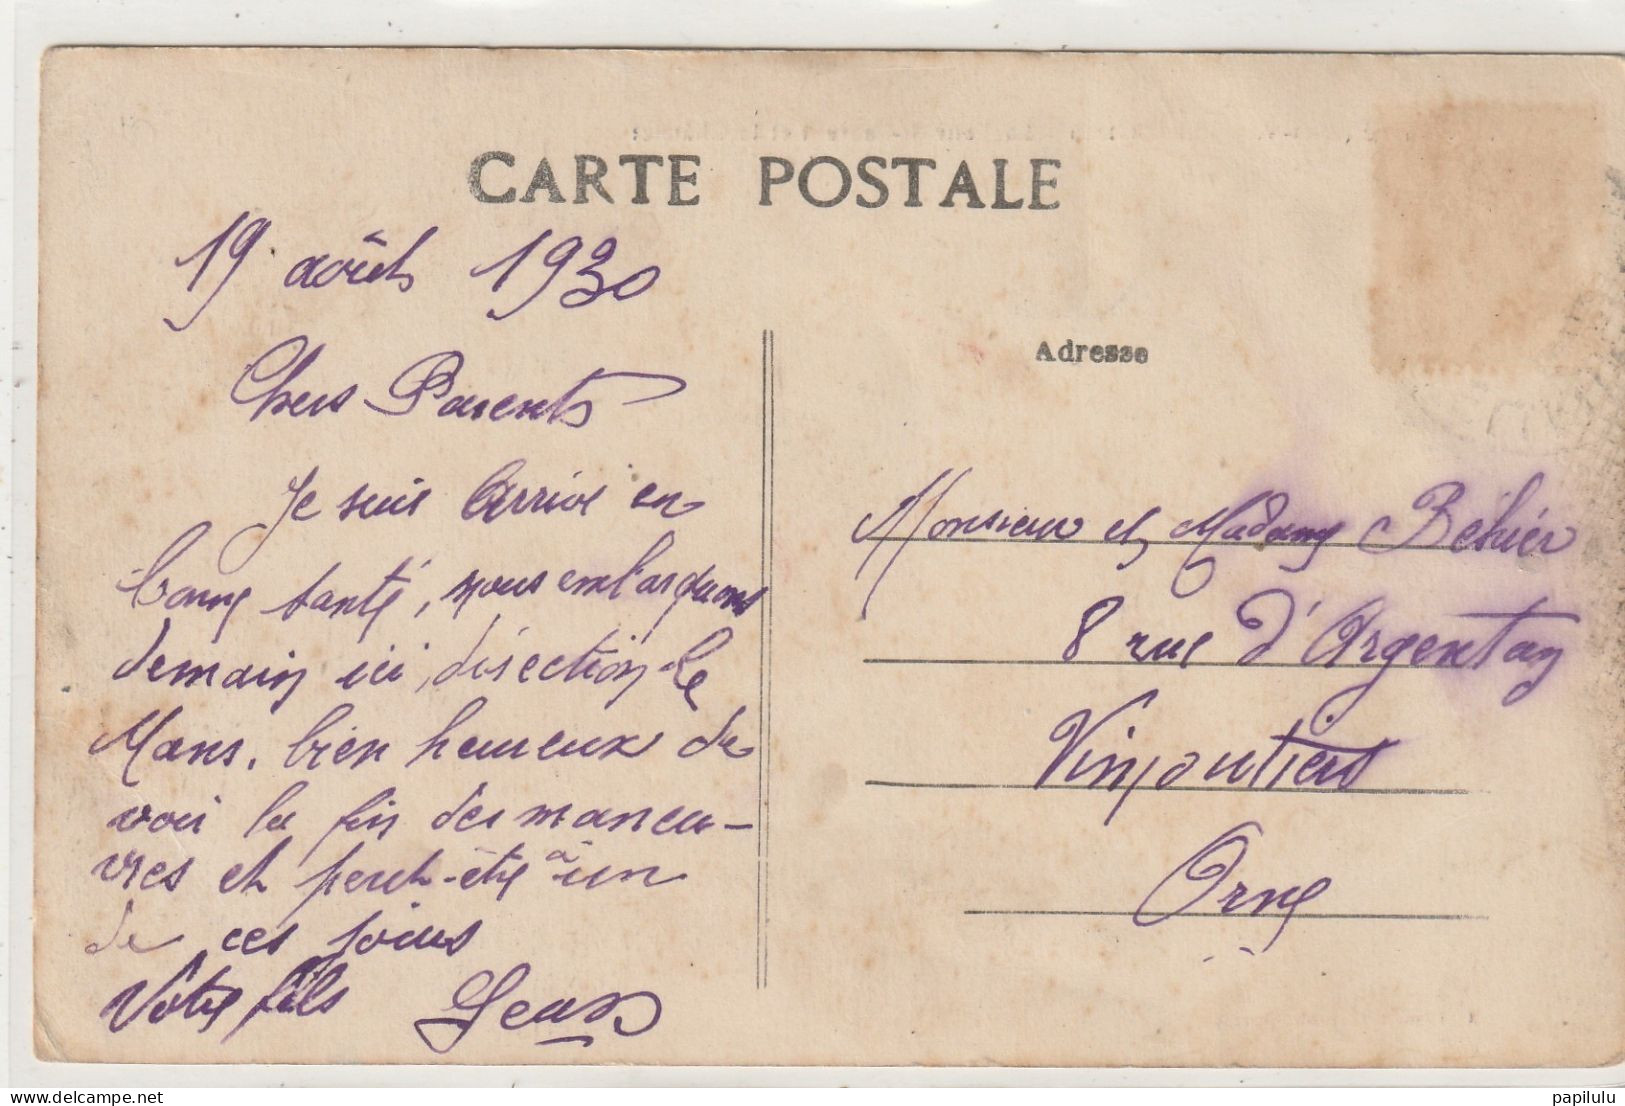 CARTE POSTALE
19 août 1930
Chers Parents
Je suis arrivé en
bonne santé, nous embarquons
demain ici, direction le
Mans. bien heureux de
voir la fin des manœu-
vres et peut-être à un
de ces jours
Votre fils Jean
Adresse
Monsieur et Madame Béhier
8 rue d'Argentan
Vimoutiers
Orne
delcampe.net
papilulu